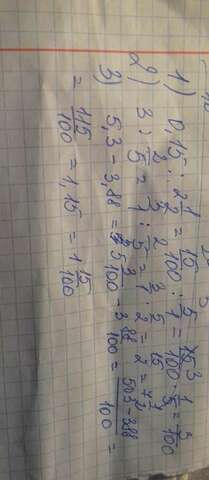 1) 0,15 : 2 1/2 = 15/100 : 5/1 = 15³/100 · 1/5 = 3/100
2) 3 : 2/5 = 3/1 : 2/5 = 3/1 · 5/2 = 15/2 = 7 1/2
3) 5,3 - 3,88 = 5 3/100 - 3 88/100 = 503-388/100 =
= 115/100 = 1,15 = 1 15/100